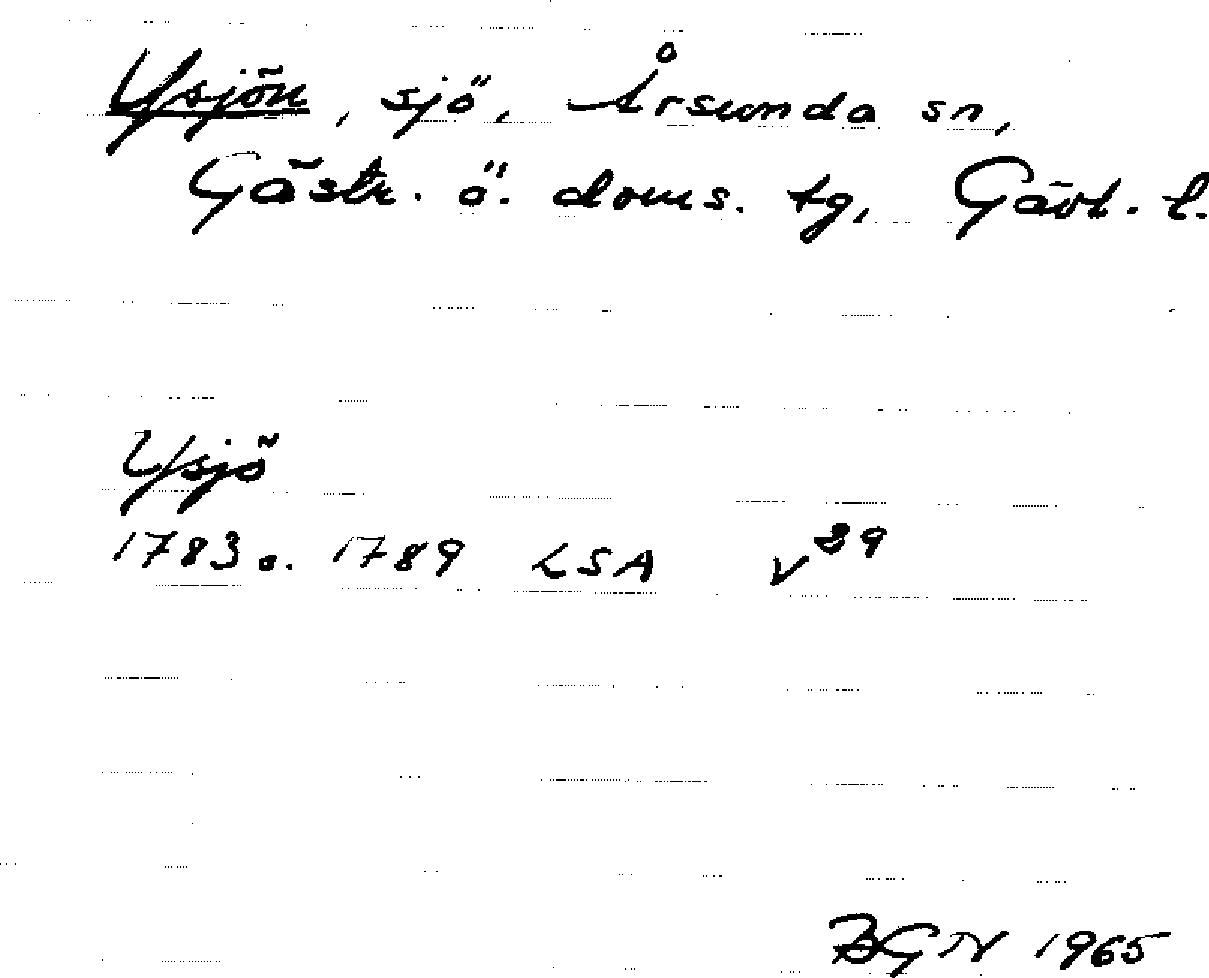 Ysjön, sjö, Årsunda sn,
Gästr. ö. doms. tg, Gävl. l.
Ysjö
1783 o. 1789 LSA v 39
BGN 1965